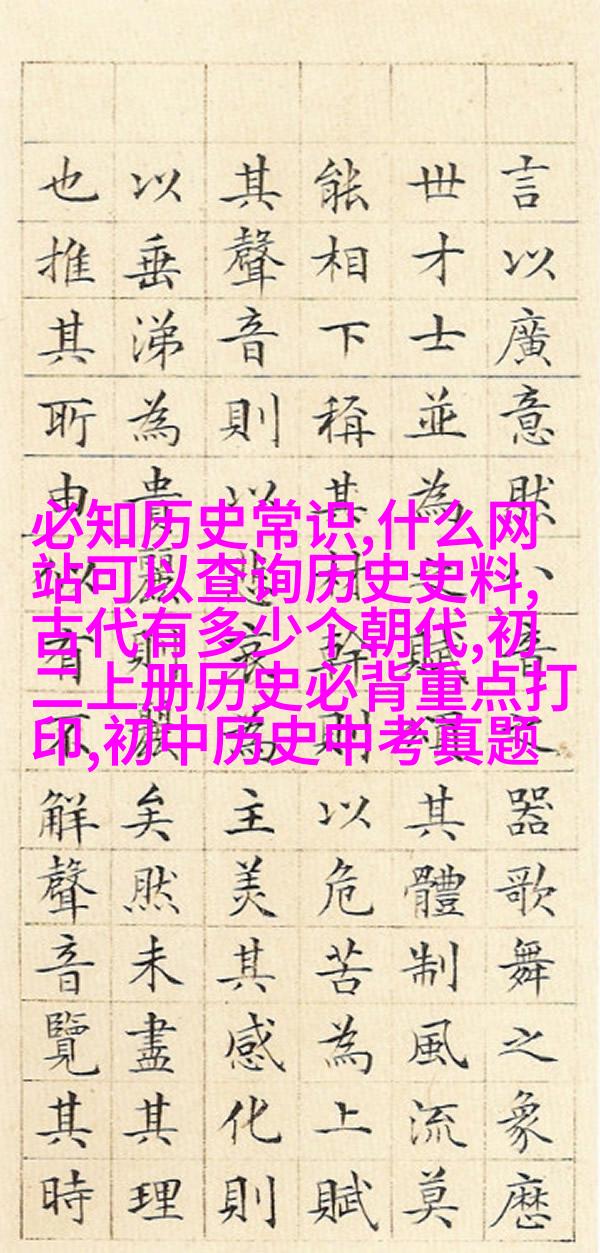 言以廣意然八音之器歌舞之象歷
世才士並為之賦頌其體制風流莫
不能相下稱其材幹則以危苦為上賦
其聲音則以悲哀為主美其感化則
以垂涕為貴麗則麗矣然未盡其理
也推其所由似有不解聲音覽其時
必知历史常识,什么网
站可以查询历史史料,
古代有多少个朝代,初
二上册历史必背重点打
印,初中历史中考真题